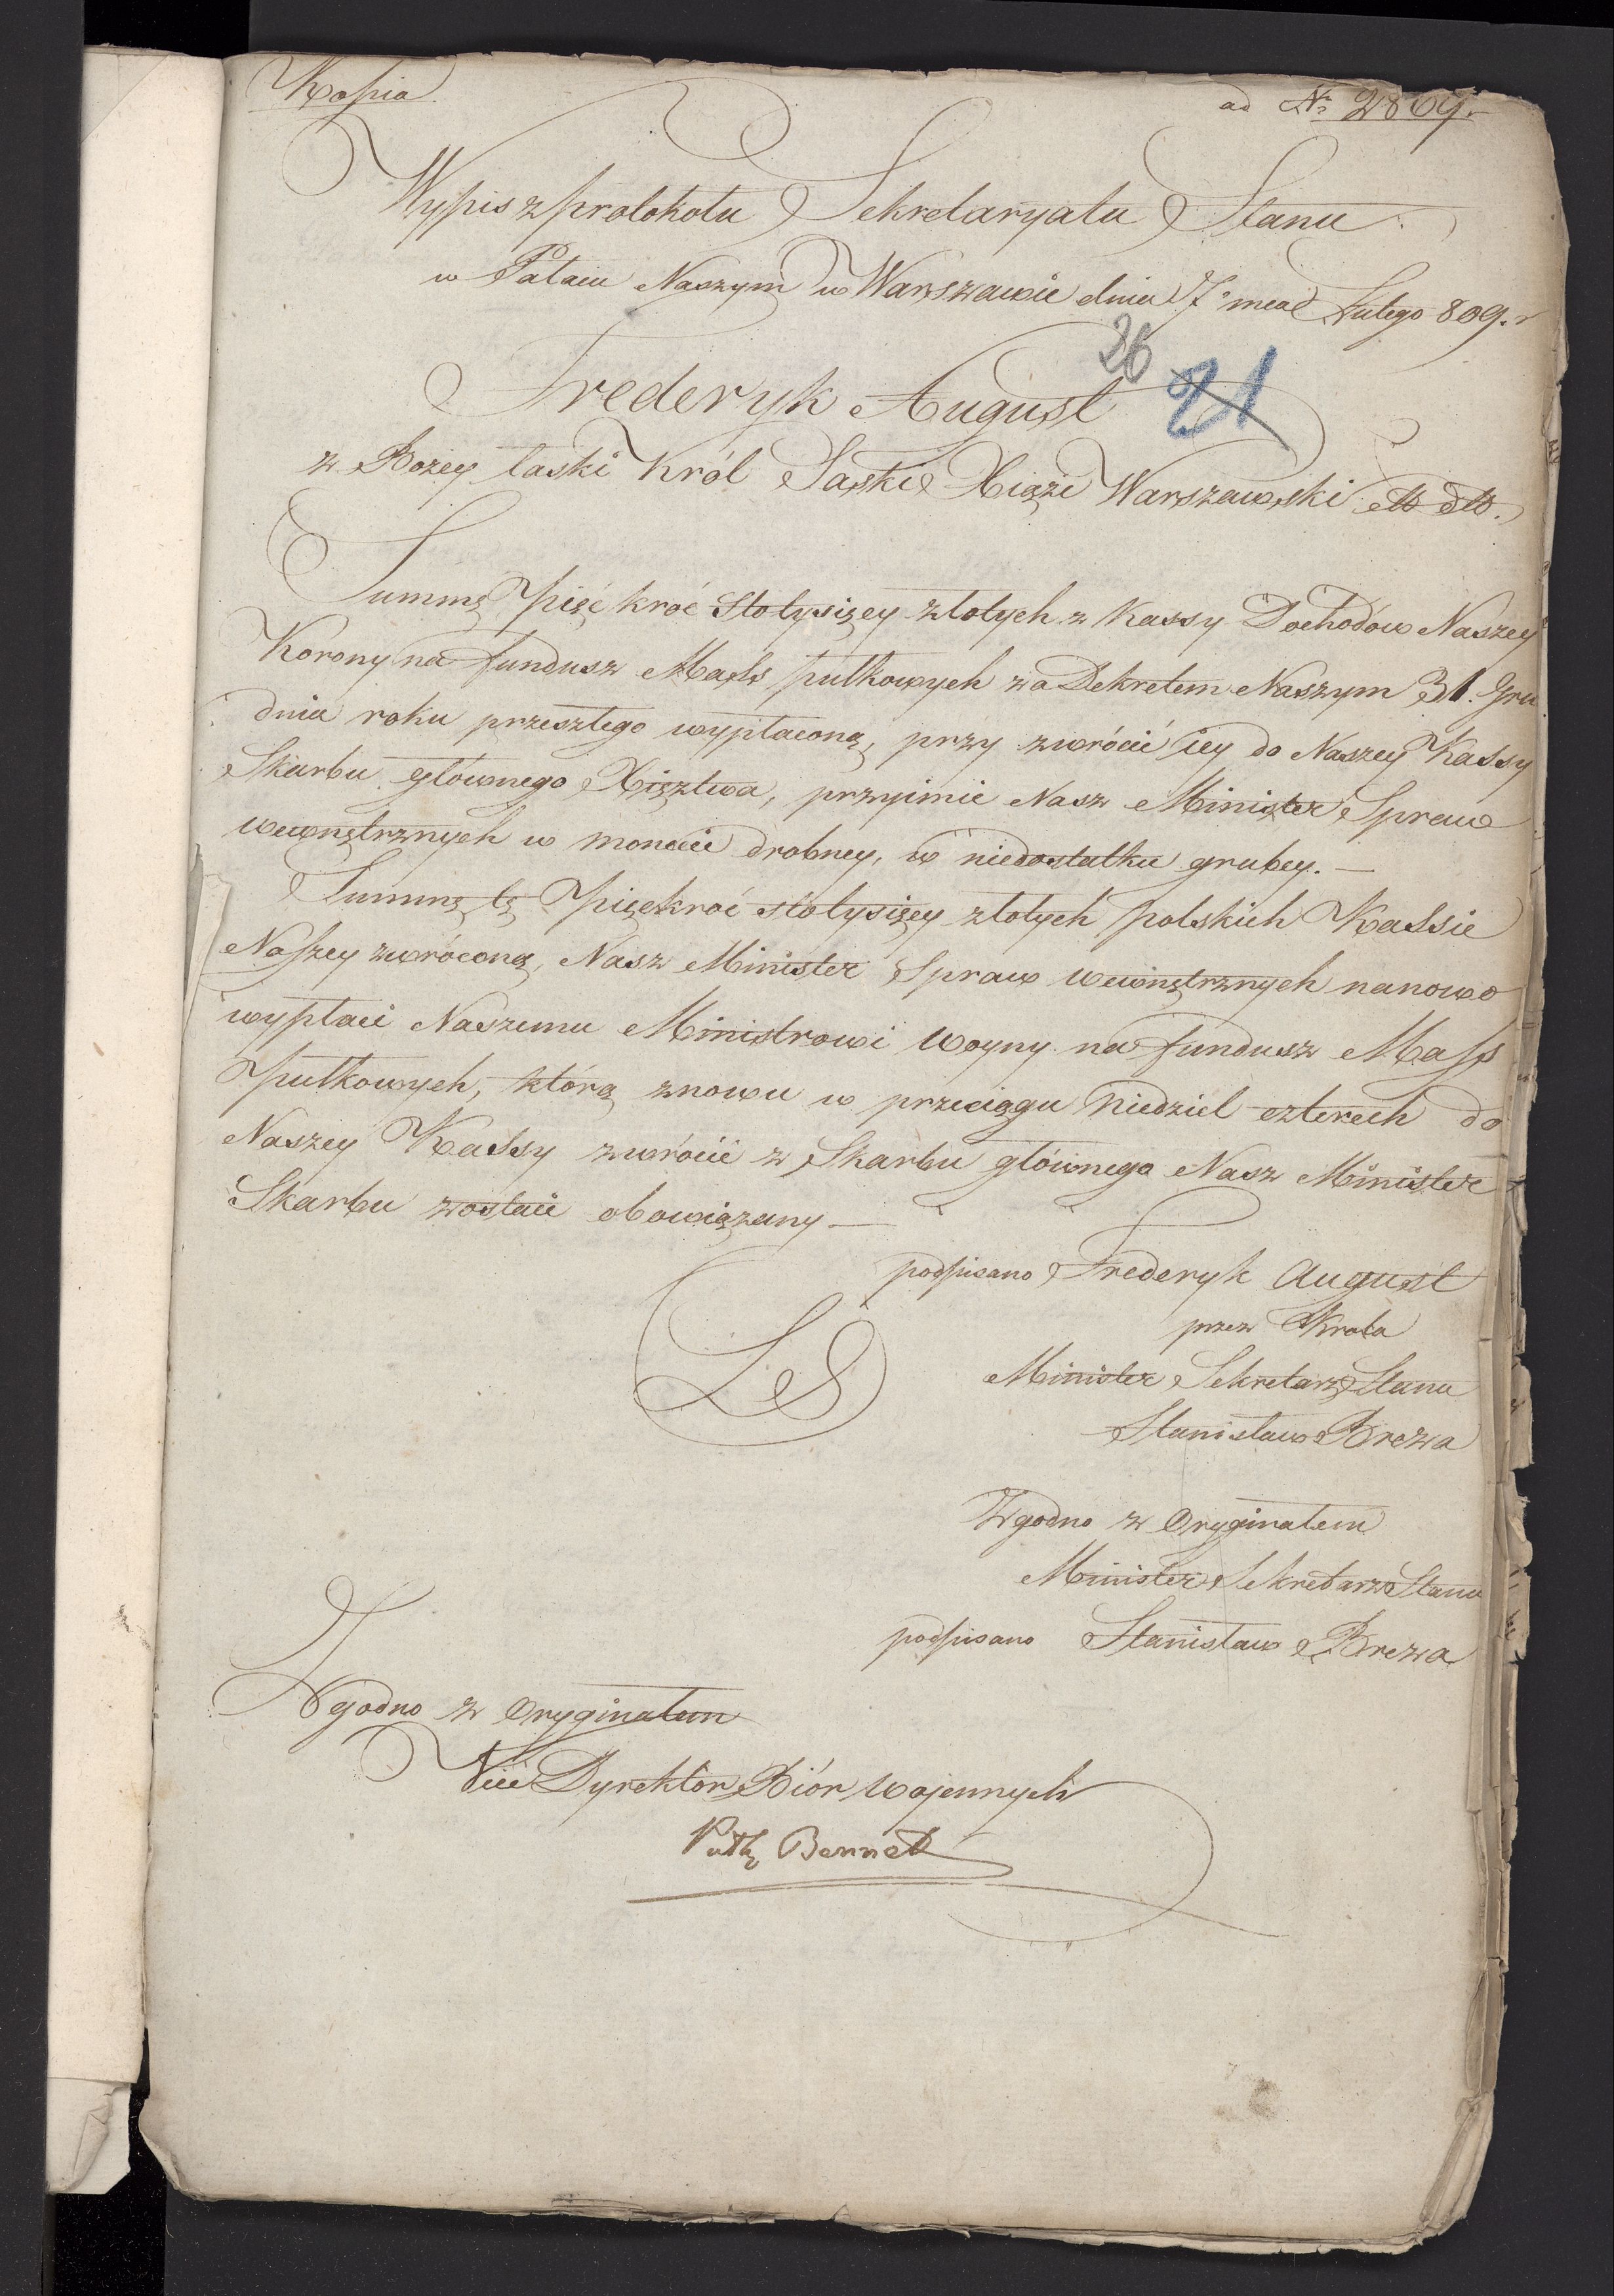 Kopia
ad Nr 2869.
Wypis z protokołu Sekretaryatu Stanu
w Pałacu Naszym w Warszawie dnia 7º mca Lutego 809. r
26 21
Frederyk August
z Bożey łaski Król Saski Xiąże Warszawski etc etc.
Summę pięć kroć stotysięcy złotych z Kassy Dochodów Naszey
Korony na fundusz Mass pułkowych za Dekretem Naszym 31. Gru
dnia roku przeszłego wypłaconą, przy zwrócie iey do Naszey Kassy
Skarbu głównego Xięztwa, przyimie Nasz Minister Spraw
wewnętrznych w monecie drobney, w niedostatku grubey. —
Summę tę pięckroć stotysięcy złotych polskich Kassie
Naszey zwróconą, Nasz Minister Spraw wewnętrznych nanowo
wypłaci Naszemu Ministrowi Woyny na fundusz Mass
pułkowych, którą znowu w przeciągu niedziel czterech do
Naszey Kassy zwrócić z Skarbu głównego Nasz Minister
Skarbu zostaie obowiązany —
podpisano Frederyk August
przez Króla
Minister Sekretarz Stanu
Stanisław Breza
LS
Zgodno z Oryginałem
Minister Sekretarz Stanu
podpisano Stanisław Breza
Zgodno z Oryginałem
Vice Dyrektor Biór Wojennych
Bennet